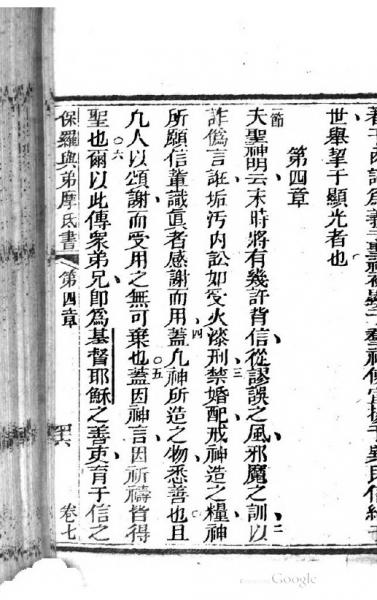 世舉挈于顯光者也
第四章
一節
夫聖神明云末時將有幾許背信從謬誤之風邪魔之訓以
二
詐偽言誑垢汚內訟如受火漆刑禁婚配戒神造之糧神
三
所願信輩識眞者感謝而用蓋凡神所造之物悉善也且
四
凡人以頌謝而受用之無可棄也蓋因神言因祈禱皆得
五
聖也爾以此傳衆弟兄卽爲基督耶穌之善吏育于信之
六
保羅與弟摩氏書
第四章
卷七
Google